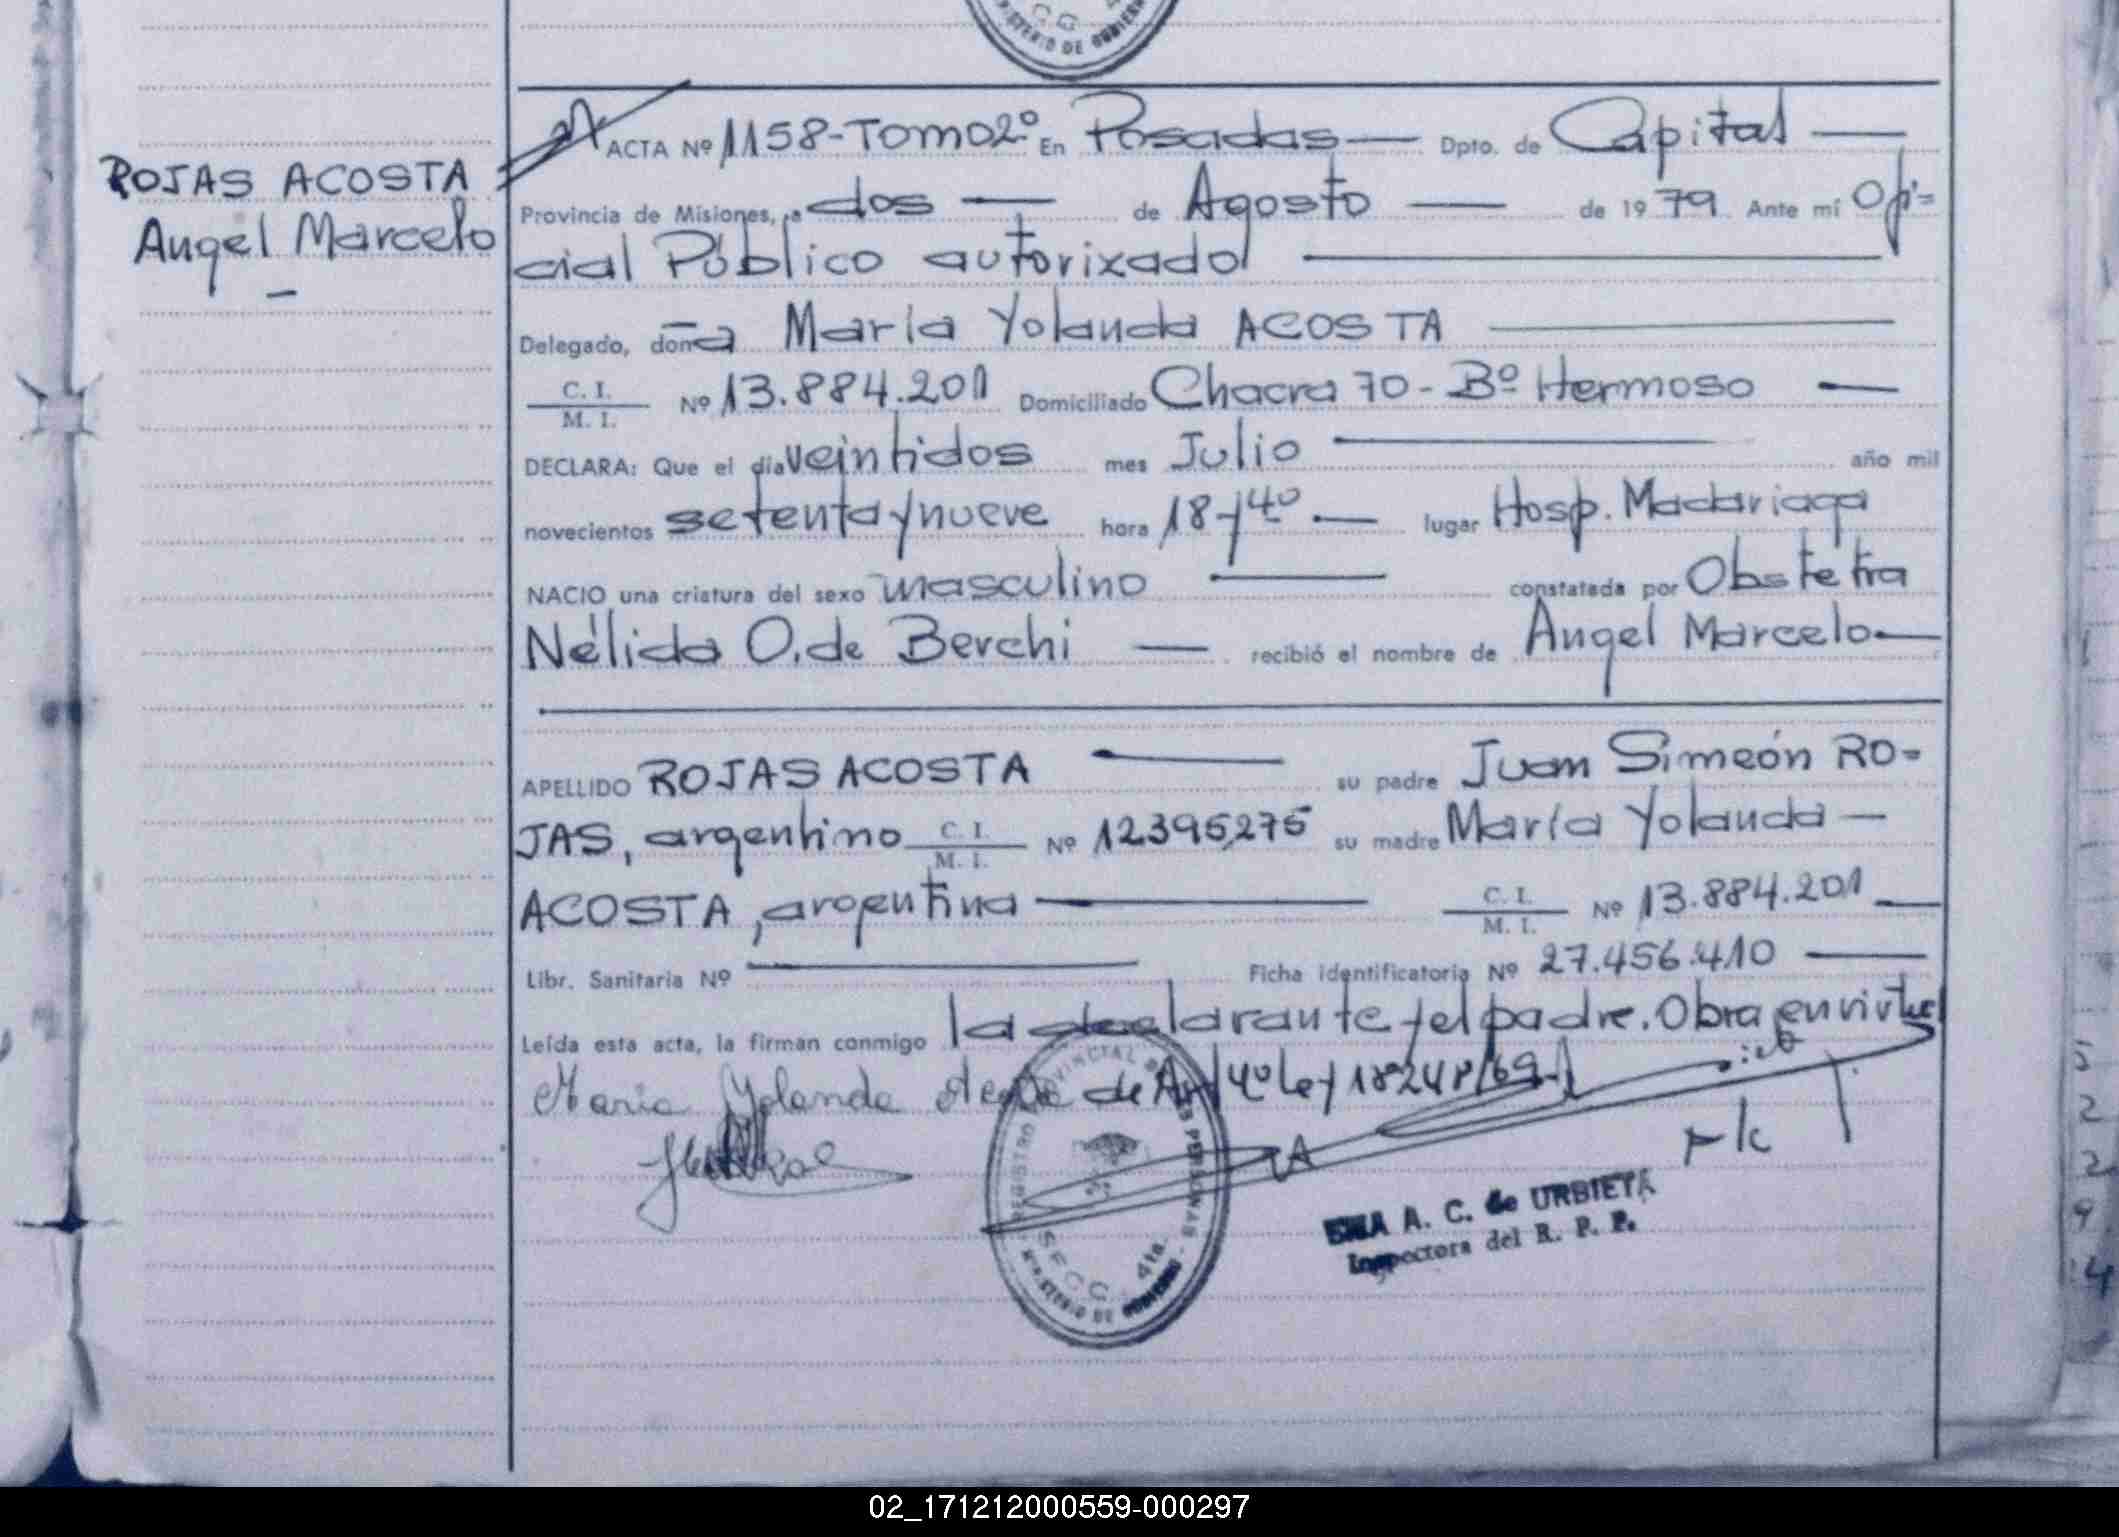 MINISTERIO DE GOBIERNO
ACTA Nº 1158-Tomo 2º En Posadas — Dpto. de Capital —
ROJAS ACOSTA
Angel Marcelo
Provincia de Misiones, a dos — de Agosto — de 1979 Ante mí Ofi=
cial Público autorizado
Delegado, doña María Yolanda ACOSTA
C. I.
M. I.
Nº 13.884.201 Domiciliado Chacra 70 - Bº Hermoso —
DECLARA: Que el día veintidos mes Julio — año mil
novecientos setenta y nueve hora 18 y 40 — lugar Hosp. Madariaga
NACIO una criatura del sexo masculino — constatada por Obstetra
Nélida O. de Berchi — recibió el nombre de Angel Marcelo —
APELLIDO ROJAS ACOSTA — su padre Juan Simeón RO=
JAS, argentino C. I. M. I. Nº 12395,275 su madre María Yolanda —
ACOSTA, argentina — C. I. M. I. Nº 13.884.201 —
Libr. Sanitaria Nº — Ficha identificatoria Nº 27.456.410 —
Leída esta acta, la firman conmigo la declarante y el padre. Obra en virtud
María Yolanda Acosta de Art 4º Ley 18248/69
REGISTRO PROVINCIAL DE LAS PERSONAS
SECC. 4ta.
MINISTERIO DE GOBIERNO
A. C. de URBIETA
Inspectora del R. P. P.
5
2
2
9
4
02_171212000559-000297